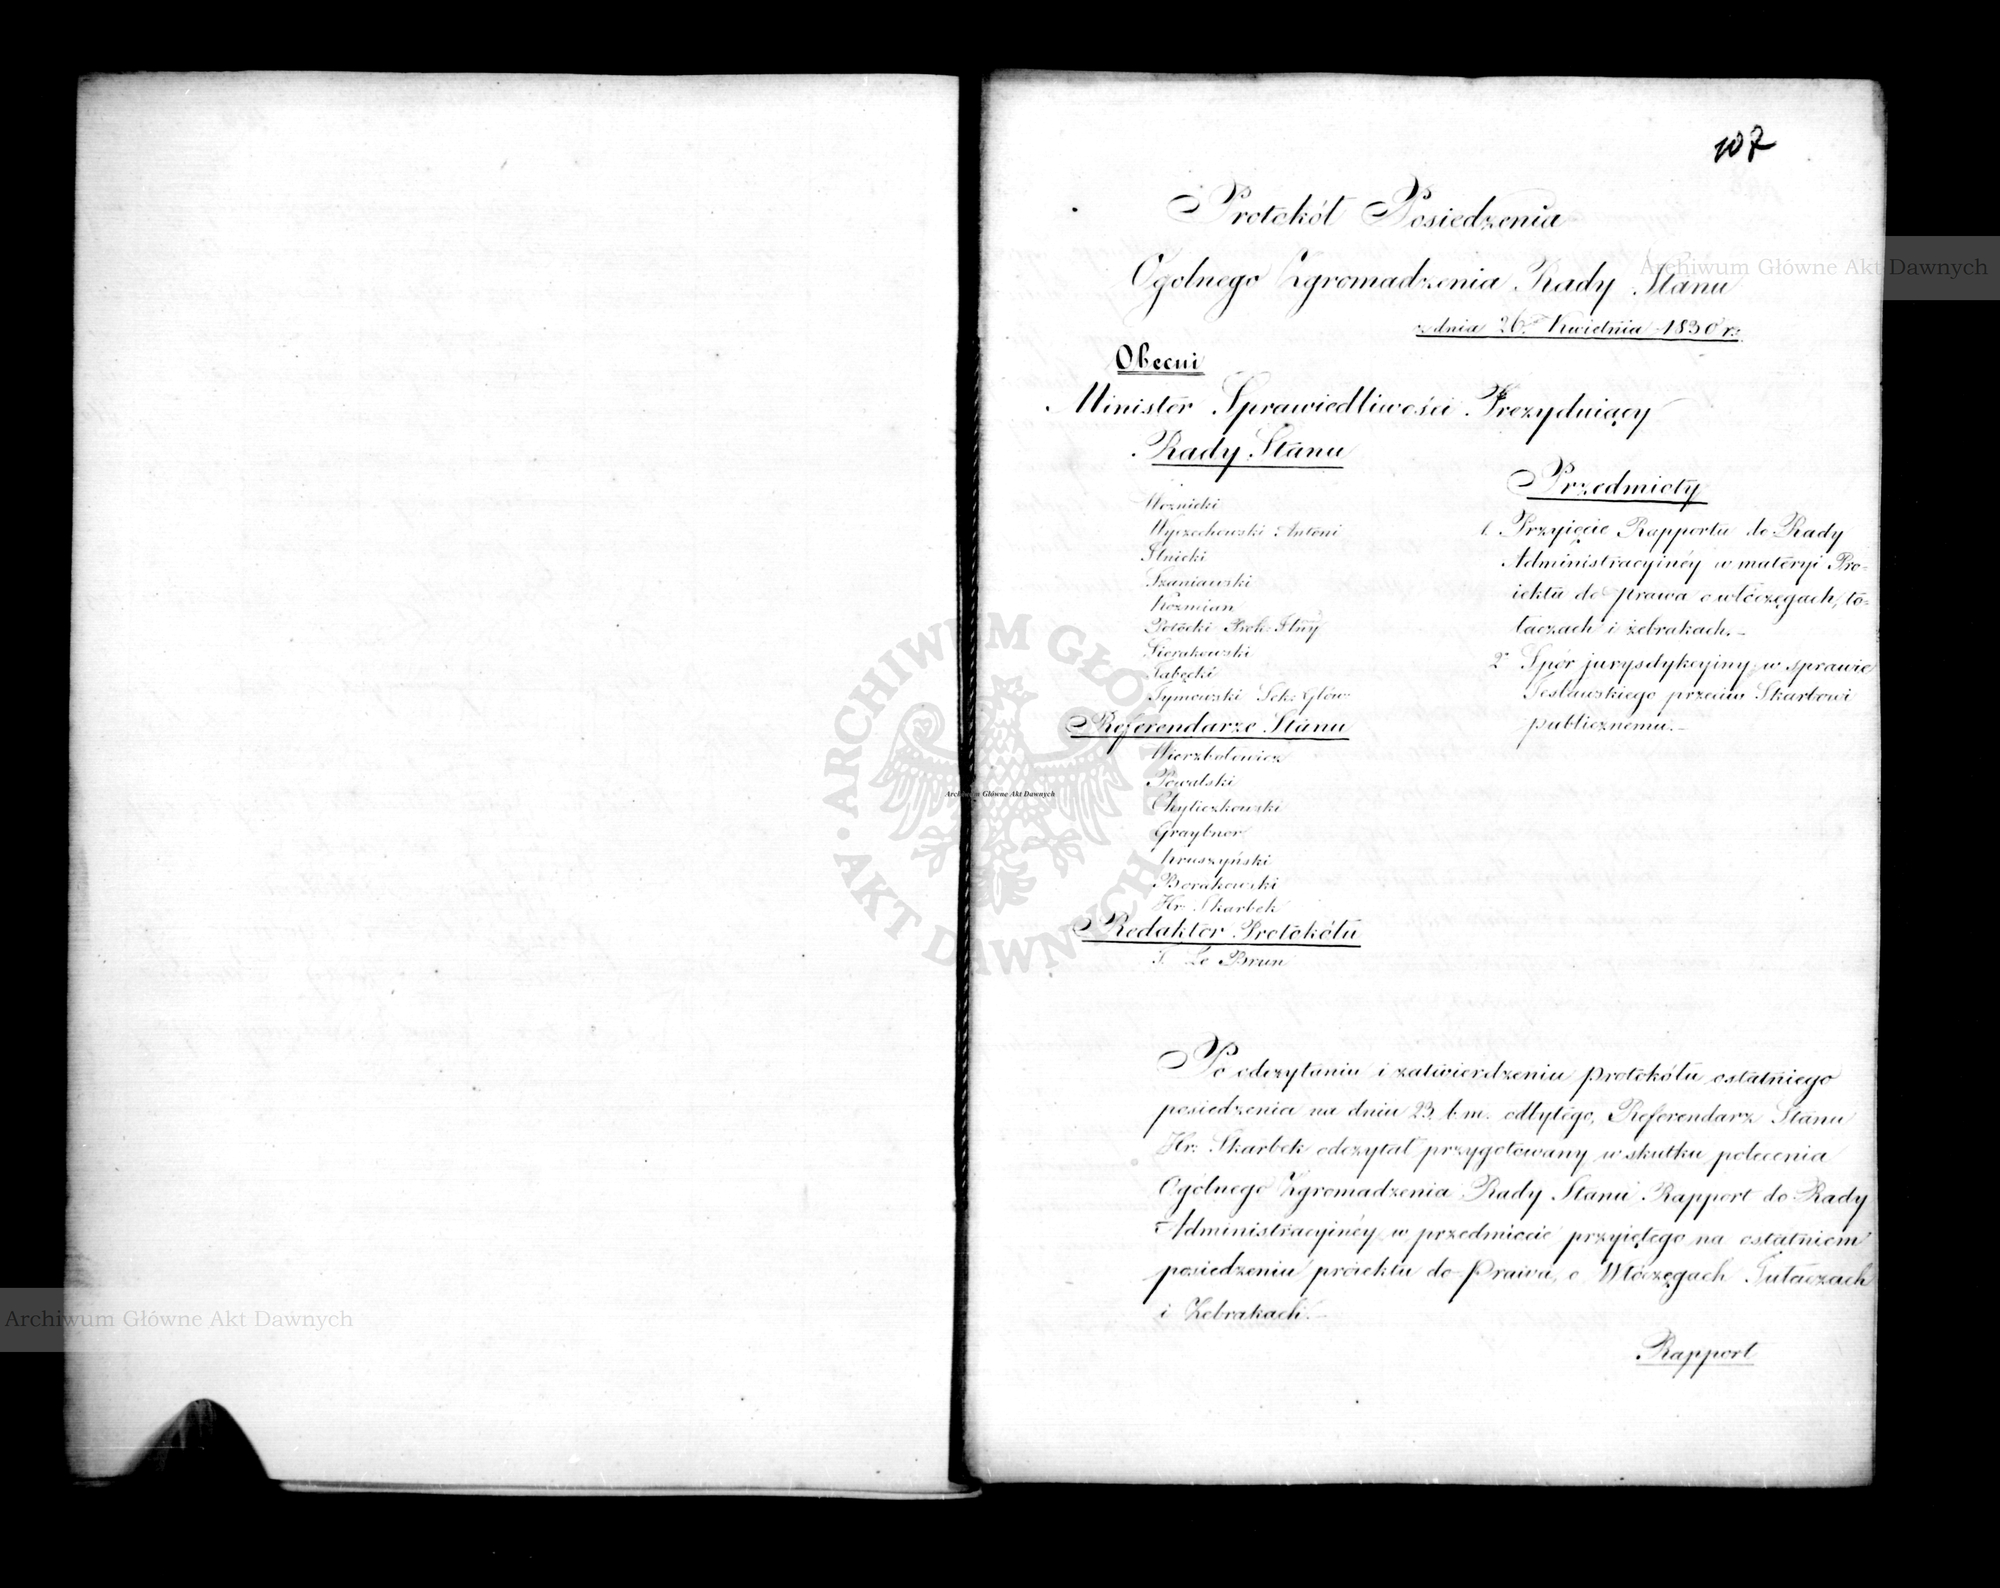 107
Protokół Posiedzenia
Ogólnego Zgromadzenia Rady Stanu
z dnia 26. Kwietnia 1830 r:
Obecni
Minister Sprawiedliwości Prezyduiący
Rady Stanu
Woznicki
Wyczechowski Antoni
Szaniawski
Kozmian
Potocki Prok: Jlny
Sierakowski
Łabęcki
Tymowski Sek: Głów:
Referendarze Stanu
Wierzbołowicz
Chyliczkowski
Graybner
Kruszyński
Borakowski
Hr: Skarbek
Redaktor Protokółu
Le Brun
Przedmioty
1. Przyięcie Rapportu do Rady
Administracyinéy w materyi Pro-
iektu do prawa o włóczęgach, tu-
łaczach i żebrakach.-
2° Spór jurysdykcyiny w sprawie
przeciw Skarbowi
publicznemu.-
Po odczytaniu i zatwierdzeniu protokółu ostatniego
posiedzenia na dniu 23. b. m. odbytego, Referendarz Stanu
Hr: Skarbek odczytał przygotowany w skutku polecenia
Ogólnego Zgromadzenia Rady Stanu Rapport do Rady
Administracyinéy w przedmiocie przyiętego na ostatniem
posiedzeniu proiektu do Prawa, o Włóczęgach Tułaczach
i Żebrakach.-
Rapport
Archiwum Główne Akt Dawnych
Archiwum Główne Akt Dawnych
Archiwum Główne Akt Dawnych
ARCHIWUM GŁÓWNE AKT DAWNYCH